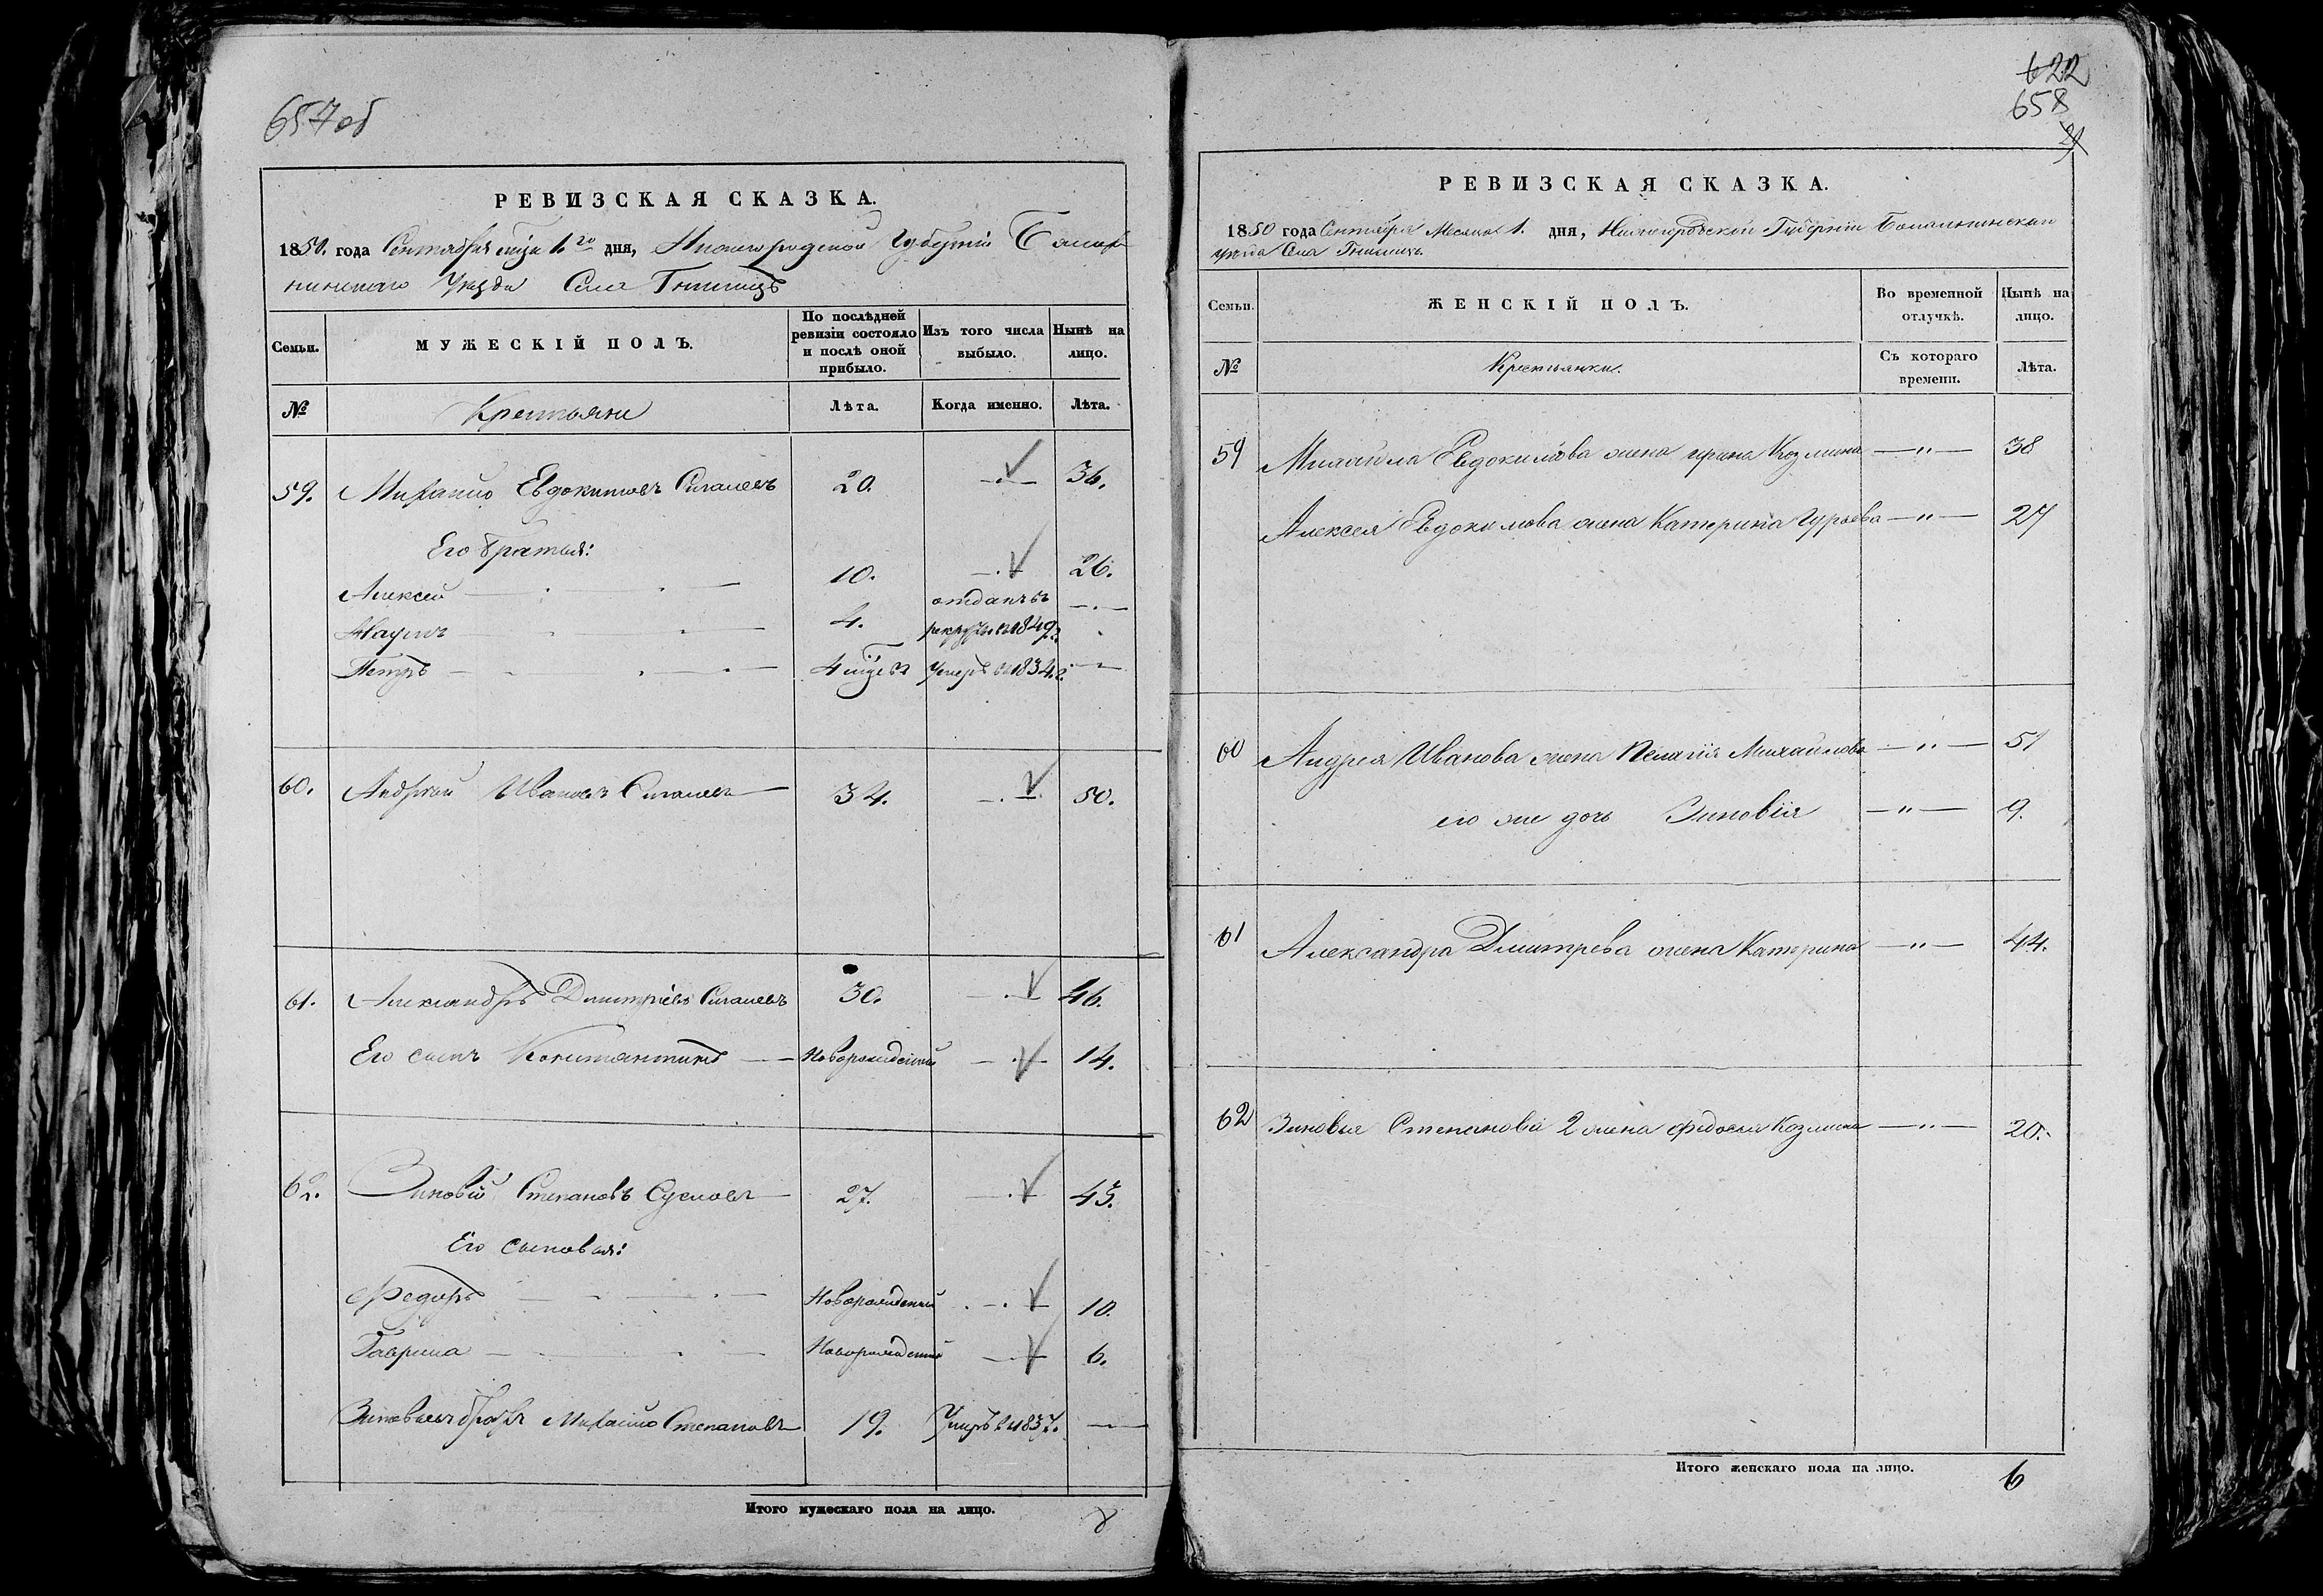 657 об
РЕВИЗСКАЯ СКАЗКА.
1850. года Сентября м̃ца 1.го дня, Нижегородской Губерніи Балах-
нинскаго Уезда Села Гнилицъ
Семьи.
МУЖЕСКІЙ ПОЛЪ.
По послѣдней ревизіи состояло и послѣ оной прибыло.
Изъ того числа выбыло.
Нынѣ на лицо.
№
Крестьяне
Лѣта.
Когда именно.
Лѣта.
59. Михайло Евдокимовъ 20. —.— 36.
Его братья:
Алексей — . — . — 10. —.— 26.
Наумъ — . — . — 4. отданъ въ рекруты въ 1849 г. —.—
Петръ — . — . — 4 Умеръ въ 1834. г. —
60. Андрей Ивановъ 34. —.— 50.
61. Александръ Дмитріевъ 30. —.— 46.
Его сынъ Константинъ — Новорожденный —.— 14.
62. Зиновій Степановъ Сусловъ — 27. .— 43.
Его сыновья:
Федоръ — . — . — Новорожденный . —.— 10.
Гаврила — . — . — Новорожденный —.— 6.
Зиновьевъ братъ Михайло Степановъ 19. Умеръ въ 1837. —
Итого мужескаго пола на лицо. 8
622
658
РЕВИЗСКАЯ СКАЗКА.
1850 года Сентября Месяца 1. дня, Нижегородской Губерніи Балахнинскаго
уезда Села Гнилицъ.
Семьи.
ЖЕНСКІЙ ПОЛЪ.
Во временной отлучкѣ.
Нынѣ на лицо.
№
Крестьянки.
Съ котораго времени.
Лѣта.
59 Михайла Евдокимова жена ирина Козмина —"— 38
Алексея Евдокимова жена Катерина Гурьева —"— 27
60 Андрея Иванова жена Пелагія Михайлова —"— 51
его же дочь Зиновія —"— 9.
61 Александра Дмитрева жена Катерина —"— 44.
62 Зиновья Степанова 2 жена федосья Козмина —"— 20.
Итого женскаго пола на лицо. 6